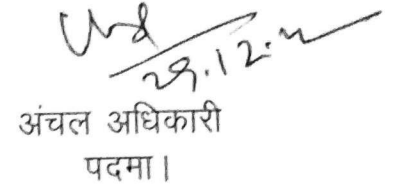 29.12.
अंचल अधिकारी
पदमा।